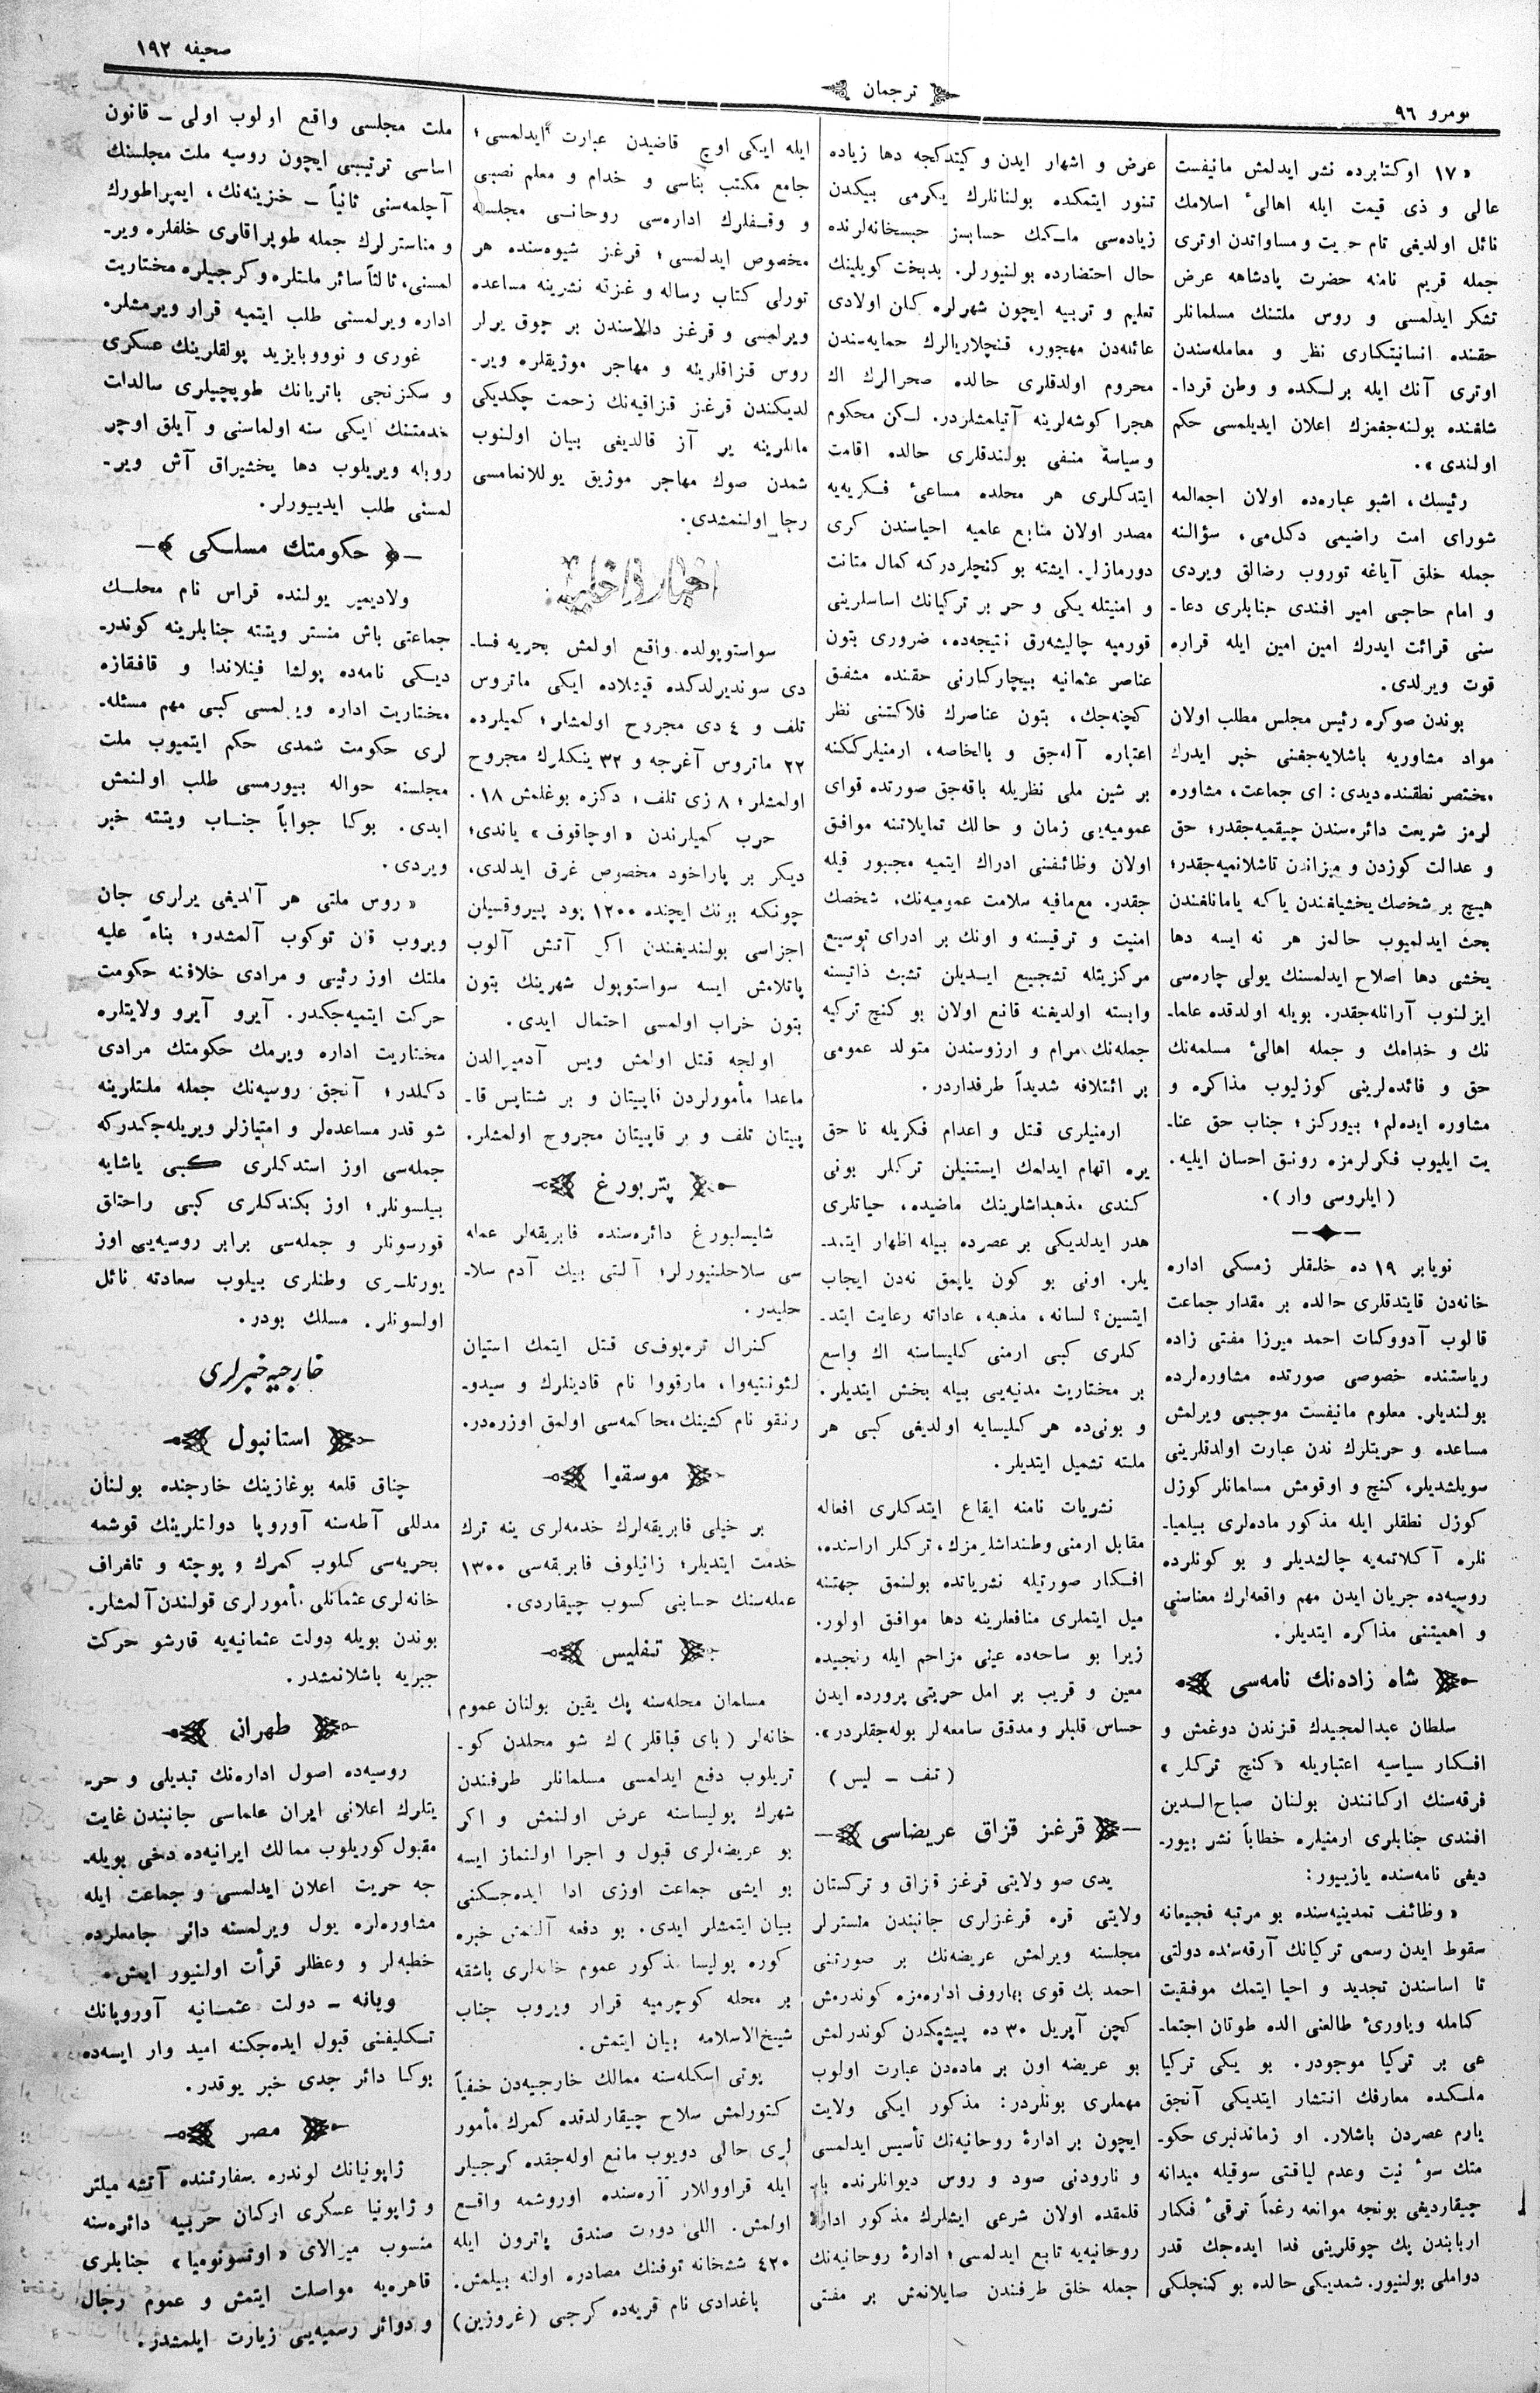 نومرو ٩٦
ترجمان
صحيفه ١٩٢
«١٧ اوكتابرده نشر ايدلمش مانيفست
عالی و ذی قيمت ايله اهالیٔ اسلامك
نائل اولديغی تام حريت و مساواتدن اوتری
جمله قريم نامنه حضرت پادشاهه عرض
تشكر ايدلمسی و روس ملتنك مسلمانلر
حقنده انسانيتكاری نظر و معامله‌سندن
اوتری آنك ايله برلكده و وطن قردا-
شلغنده بولنه‌جغمزك اعلان ايديلمسی حكم
اولندی».
رئيسك، اشبو عباره‌ده اولان اجمالمه
شورای امت راضيمی دكل‌می، سؤالنه
جمله خلق آياغه توروب رضالق ويردی
و امام حاجی امير افندی جنابلری دعا-
سنی قرائت ايدرك امين امين ايله قراره
قوت ويرلدی.
بوندن صوكره رئيس مجلس مطلب اولان
مواد مشاوريه باشلايه‌جغنی خبر ايدرك
مختصر نطقنده ديدی: ای جماعت، مشاوره
لرمز شريعت دائره‌سندن چيقميه‌جقدر؛ حق
و عدالت كوزدن و ميزاندن تاشلانميه‌جقدر؛
هيچ بر شخصك يخشيلغندن ياكه يامانلغندن
بحث ايدلميوب حالمز هر نه ايسه دها
يخشی دها اصلاح ايدلمسنك يولی چاره‌سی
ايزلنوب آرانله‌جقدر. بويله اولدقده علما-
نك و خدامك و جمله اهالیٔ مسلمه‌نك
حق و فائده‌لرينی كوزليوب مذاكره و
مشاوره ايده‌لم؛ بيوركز؛ جناب حق عنا-
يت ايليوب فكرلرمزه رونق احسان ايليه.
(ايلروسی وار).
نويابر ١٩ ده خلقلر زمسكی اداره
خانه‌دن قايتدقلری حالده بر مقدار جماعت
قالوب آدووكات احمد ميرزا مفتی زاده
رياستنده خصوصی صورتده مشاوره‌لرده
بولنديلر. معلوم مانيفست موجبی ويرلمش
مساعده و حريتلرك ندن عبارت اولدقلرينی
سويلشديلر، كنج و اوقومش مسلمانلر كوزل
كوزل نطقلر ايله مذكور ماده‌لری بيلميا-
نلره آكلاتمه‌يه چالشديلر و بو كونلرده
روسيه‌ده جريان ايدن مهم واقعه‌لرك معناسنی
و اهميتنی مذاكره ايتديلر.
شاه زاده‌نك نامه‌سی
سلطان عبدالمجيدك قزندن دوغمش و
افكار سياسيه اعتباريله «كنج تركلر»
فرقه‌سنك اركانندن بولنان صباح‌الدين
افندی جنابلری ارمنيلره خطاباً نشر بيور-
ديغی نامه‌سنده يازييور:
«وظائف تمدينيه‌سنده بو مرتبه فجيعانه
سقوط ايدن رسمی تركيانك آرقه‌سنده دولتی
تا اساسندن تجديد و احيا ايتمك موفقيت
كامله وياوریٔ طالعنی الده طوتان اجتما-
عی بر تركيا موجودر. بو يكی تركيا
ملكده معارفك انتشار ايتديكی آنجق
يارم عصردن باشلار. او زماندنبری حكو-
متك سوء نيت وعدم لياقتی سوقيله ميدانه
چيقارديغی بونجه موانعه رغماً ترقیٔ فكار
اربابندن پك چوقلرينی فدا ايده‌جك قدر
دواملی بولنيور. شمديكی حالده بو كنجلكی
عرض و اشهار ايدن و كيتدكجه دها زياده
تنور ايتمكده بولنانلرك يكرمی بيكدن
زياده‌سی مملكتك حسابسز حبسخانه‌لرنده
حال احتضارده بولنيورلر. بدبخت كويلينك
تعليم و تربيه ايچون شهرلره كلن اولادی
عائله‌دن مهجور، قنچلاريالرك حمايه‌سندن
محروم اولدقلری حالده صحرالرك اك
هجرا كوشه‌لرينه آتيلمشلردر. لكن محكوم
وسياسةً منفی بولندقلری حالده اقامت
ايتدكلری هر محلده مساعیٔ فكريه‌يه
مصدر اولان منابع علميه احياسندن كری
دورمازلر. ايشته بو كنجلردركه كمال متانت
و امنيتله يكی و حر بر تركيانك اساسلرينی
قورميه چاليشه‌رق نتيجه‌ده، ضروری بتون
عناصر عثمانيه بيچاركانی حقنده مشفق
كچنه‌جك، بتون عناصرك فلاكتنی نظر
اعتباره آله‌جق و بالخاصه، ارمنيلرككنه
بر شين ملی نظريله باقه‌جق صورتده قوای
عموميه‌یی زمان و حالك تمايلاتنه موافق
اولان وظائفنی ادراك ايتميه مجبور قيله
جقدر. مع‌مافيه سلامت عموميه‌نك، شخصك
امنيت و ترقيسنه و اونك بر ادرای توسيع
مركزيتله تشجيع ايديلن تشبث ذاتيسنه
وابسته اولديغنه قانع اولان بو كنج تركيه
جمله‌نك مرام و ارزوسندن متولد عمومی
بر ائتلافه شديداً طرفداردر.
ارمنيلری قتل و اعدام فكريله نا حق
يره اتهام ايدلمك ايستنيلن تركلر بونی
كندی مذهبداشلرينك ماضيده، حياتلری
هدر ايدلديكی بر عصرده بيله اظهار ايتمـ
يلر. اونی بو كون ياپمق نه‌دن ايجاب
ايتسين؟ لسانه، مذهبه، عاداته رعايت ايتد-
كلری كبی ارمنی كليساسنه اك واسع
بر مختاريت مدنيه‌یی بيله بخش ايتديلر.
و بونی‌ده هر كليسايه اولديغی كبی هر
ملته تشميل ايتديلر.
نشريات نامنه ايقاع ايتدكلری افعاله
مقابل ارمنی وطنداشلرمزك، تركلر اراسنده،
افكار صورتيله نشرياتده بولنمق جهتنه
ميل ايتملری منافعلرينه دها موافق اولور.
زيرا بو ساحه‌ده عينی مزاحم ايله رنجيده
معين و قريب بر امل حريتی پرورده ايدن
حساس قلبلر و مدقق سامعه‌لر بوله‌جقلردر».
(تف - ليس)
قرغز قزاق عريضاسی
يدی صو ولايتی قرغز قزاق و تركستان
ولايتی قره قرغزلری جانبندن منسترلر
مجلسنه ويرلمش عريضه‌نك بر صورتنی
احمد بك قوی بهاروف اداره‌مزه كوندرمش
كچن آپريل ٣٠ ده پيشپكدن كوندرلمش
بو عريضه اون بر ماده‌دن عبارت اولوب
مهملری بونلردر: مذكور ايكی ولايت
ايچون بر ادارهٔ روحانيه‌نك تأسيس ايدلمسی
و نارودنی صود و روس ديوانلرنده با-
قلمقده اولان شرعی ايشلرك مذكور ادارهٔ
روحانيه‌يه تابع ايدلمسی؛ ادارهٔ روحانيه‌نك
جمله خلق طرفندن صايلانمش بر مفتی
ايله ايكی اوچ قاضيدن عبارت ايدلمسی؛
جامع مكتب بناسی و خدام و معلم نصبی
و وقفلرك اداره‌سی روحانی مجلسه
مخصوص ايدلمسی؛ قرغز شيوه‌سنده هر
تورلی كتاب رساله و غزته نشرينه مساعده
ويرلمسی و قرغز دالاسندن بر چوق يرلر
روس قزاقلرينه و مهاجر موژيقلره وير-
لديكندن قرغز قزاقيه‌نك زحمت چكديكی
ماللرينه ير آز قالديغی بيان اولنوب
شمدن صوك مهاجر موژيق يوللانمامسی
رجا اولنمشدی.
اخبار داخليه
سواستوپولده واقع اولمش بحريه فسا-
دی سونديرلدكده قيشلاده ايكی ماتروس
تلف و ٤ دی مجروح اولمشلر؛ كميلرده
٢٢ ماتروس آغرجه و ٣٢ ينكلرك مجروح
اولمشلر؛ ٨ زی تلف؛ دكزه بوغلمش ١٨.
حرب كميلرندن «اوچاقوف» ياندی؛
ديكر بر پاراخود مخصوص غرق ايدلدی،
چونكه بونك ايچنده ١٢٠٠ پود پيروقسيلن
اجزاسی بولنديغندن اكر آتش آلوب
پاتلامش ايسه سواستوپول شهرينك بتون
بتون خراب اولمسی احتمال ايدی.
اولجه قتل اولمش ويس آدميرالدن
ماعدا مأمورلردن قاپيتان و بر شتاپس قا-
پيتان تلف و بر قاپيتان مجروح اولمشلر.
پتربورغ
شليسلبورغ دائره‌سنده فابريقه‌لر عمله
سی سلاحلنيورلر؛ آلتی بيك آدم سلا-
حليدر.
كنرال تره‌پوف‌ی قتل ايتمك استيان
لئونتيه‌وا، مارقووا نام قادينلرك و سيدو-
رنقو نام كشينك محاكمه‌سی اولمق اوزره‌در.
موسقوا
بر خيلی فابريقه‌لرك خدمه‌لری ينه ترك
خدمت ايتديلر؛ زانيلوف فابريقه‌سی ١٣٠٠
عمله‌سنك حسابنی كسوب چيقاردی.
تفليس
مسلمان محله‌سنه پك يقين بولنان عموم
خانه‌لر (بای قباقلر)ك شو محلدن كو-
تريلوب دفع ايدلمسی مسلمانلر طرفندن
شهرك پوليساسنه عرض اولنمش و اكر
بو عريضه‌لری قبول و اجرا اولنماز ايسه
بو ايشی جماعت اوزی ادا ايده‌جكنی
بيان ايتمشلر ايدی. بو دفعه آلنمش خبره
كوره پوليسا مذكور عموم خانه‌لری باشقه
بر محله كوچرميه قرار ويروب جناب
شيخ‌الاسلامه بيان ايتمش.
پوتی اسكله‌سنه ممالك خارجيه‌دن خفياً
كتورلمش سلاح چيقارلدقده كمرك مأمور
لری حالی دويوب مانع اوله‌جقده كرجيلر
ايله قراووللار آره‌سنده اوروشمه واقع
اولمش. اللی دورت صندق پاترون ايله
٤٢٠ ششخانه توفنك مصادره اولنه بيلمش.
باغدادی نام قريه‌ده كرجی (غروزين)
ملت مجلسی واقع اولوب اولی - قانون
اساسی ترتيبی ايچون روسيه ملت مجلسنك
آچلمه‌سنی ثانياً - خزينه‌نك، ايمپراطورك
و مناسترلرك جمله طوپراقلری خلقلره وير-
لمسنی، ثالثاً سائر ملتلره و كرجيلره مختاريت
اداره ويرلمسنی طلب ايتميه قرار ويرمشلر.
غوری و نووو‌بايزيد پولقلرينك عسكری
و سكزنجی باتريانك طوپچيلری سالدات
خدمتنك ايكی سنه اولماسنی و آيلق اوچر
روبله ويريلوب دها يخشيراق آش وير-
لمسنی طلب ايدييورلر.
حكومتك مسلكی
ولاديمير يولنده قراس نام محلك
جماعتی باش منستر ويتته جنابلرينه كوندر-
ديكی نامه‌ده پولشا فينلاندا و قافقازه
مختاريت اداره ويرلمسی كبی مهم مسئله-
لری حكومت شمدی حكم ايتميوب ملت
مجلسنه حواله بيورمسی طلب اولنمش
ايدی. بوكا جواباً جناب ويتته خبر
ويردی.
«روس ملتی هر آلديغی يرلری جان
ويروب قان توكوب آلمشدر؛ بناءً عليه
ملتك اوز رئيی و مرادی خلافنه حكومت
حركت ايتميه‌جكدر. آيرو آيرو ولايتلره
مختاريت اداره ويرمك حكومتك مرادی
دكلدر؛ آنجق روسيه‌نك جمله ملتلرينه
شو قدر مساعده‌لر و امتيازلر ويريله‌جكدركه
جمله‌سی اوز استدكلری كبی ياشايه
بيلسونلر؛ اوز بكندكلری كبی راحتلق
قورسونلر و جمله‌سی برابر روسيه‌يی اوز
يورتلری وطنلری بيلوب سعادته نائل
اولسونلر. مسلك بودر.
خارجيه خبرلری
استانبول
چناق قلعه بوغازينك خارجنده بولنان
مدللی آطه‌سنه آوروپا دولتلرينك قوشمه
بحريه‌سی كلوب كمرك و پوچته و تلغراف
خانه‌لری عثمانلی مأمورلری قولندن آلمشلر.
بوندن بويله دولت عثمانيه‌يه قارشو حركت
جبريه باشلانمشدر.
طهران
روسيه‌ده اصول اداره‌نك تبديلی و حر-
يتلرك اعلانی ايران علماسی جانبندن غايت
مقبول كوريلوب ممالك ايرانيه‌ده دخی بويله-
جه حريت اعلان ايدلمسی و جماعت ايله
مشاوره‌لره يول ويرلمسنه دائر جامعلرده
خطبه‌لر و وعظلر قرأت اولنيور ايمش.
ويانه - دولت عثمانيه آوروپانك
تكليفنی قبول ايده‌جكنه اميد وار ايسه‌ده
بوكا دائر جدی خبر يوقدر.
مصر
ژاپونيانك لوندره سفارتنده آتشه ميلتر
و ژاپونيا عسكری اركان حربيه دائره‌سنه
منسوب ميرالای «اوتسونوميا» جنابلری
قاهره‌يه مواصلت ايتمش و عموم رجال
و دوائر رسميه‌يی زيارت ايلمشدر.